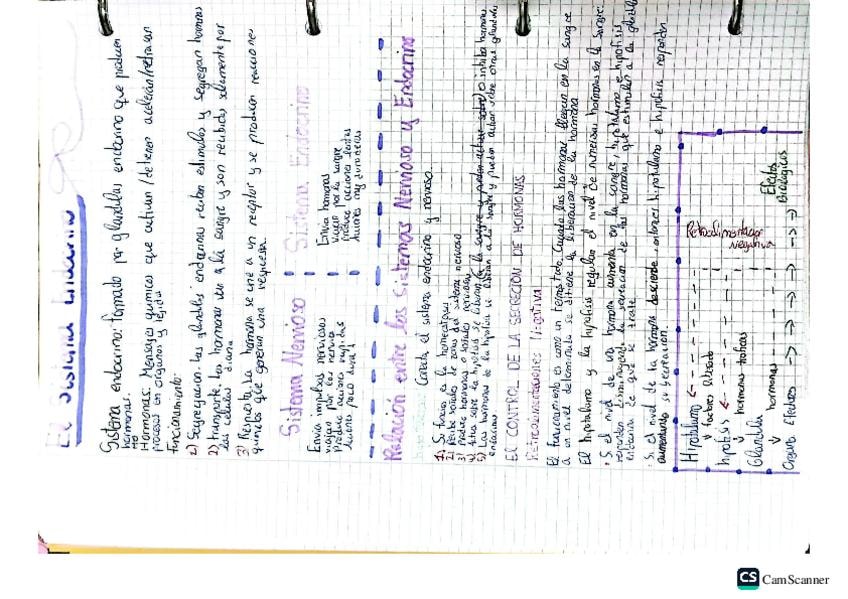 El Sistema Endocrino
Sistema endocrino: formado por glándulas endocrino que producen
hormonas.
Hormonas: Mensajes químicos que activan/detienen aceleran/retrasan
procesos en órganos y tejidos
Funcionamiento:
1) Segregación: Las glándulas endocrinas reciben estímulos y segregan hormonas
2) Transporte: Las hormonas van a la sangre y son recibidas solamente por
las células diana
3) Respuesta: La hormona se une a un receptor y se producen reacciones
químicas que generan una respuesta
Sistema Nervioso
Envía impulsos nerviosos
viajan por los nervios
Produce acciones rápidas
durante poco
Sistema Endocrino
Envía hormonas
viajan por la sangre
produce acciones lentas
acciones muy duraderas
Relación entre los Sistemas Nervioso y Endocrino
Conecta el sistema endocrino y nervioso.
1) Su función es la homeostasis
2) Recibe señales de zonas del sistema nervioso
3) Produce hormonas o señales nerviosas
4) Actúa sobre la hipófisis se liberan a la sangre y pueden actuar sobre o inhibir hormonas
5) Las hormonas de la hipófisis se liberan a la sangre y pueden actuar sobre otras glándulas
endocrinas
EL CONTROL DE LA SECRECIÓN DE HORMONAS
Retroalimentaciones Negativa
El funcionamiento es como un termostato. Cuando las hormonas llegan en la sangre
a un nivel determinado se detiene la liberación de la hormona
El hipotálamo y la hipófisis regulan el nivel de numerosas hormonas en la sangre.
· Si el nivel de una hormona aumenta en la sangre, hipotálamo e hipófisis
responden disminuyendo la secreción de las hormonas que estimulan a la glándula
endocrina de que se trate.
· Si el nivel de la hormona desciende entonces hipotálamo e hipófisis responden
aumentando su secreción.
Hipotálamo
factores liberado
hipófisis
hormonas tróficas
Glándula
hormonas
Órganos Efectores
Retroalimentación
Negativa
Efectos
Biológicos
CS CamScanner